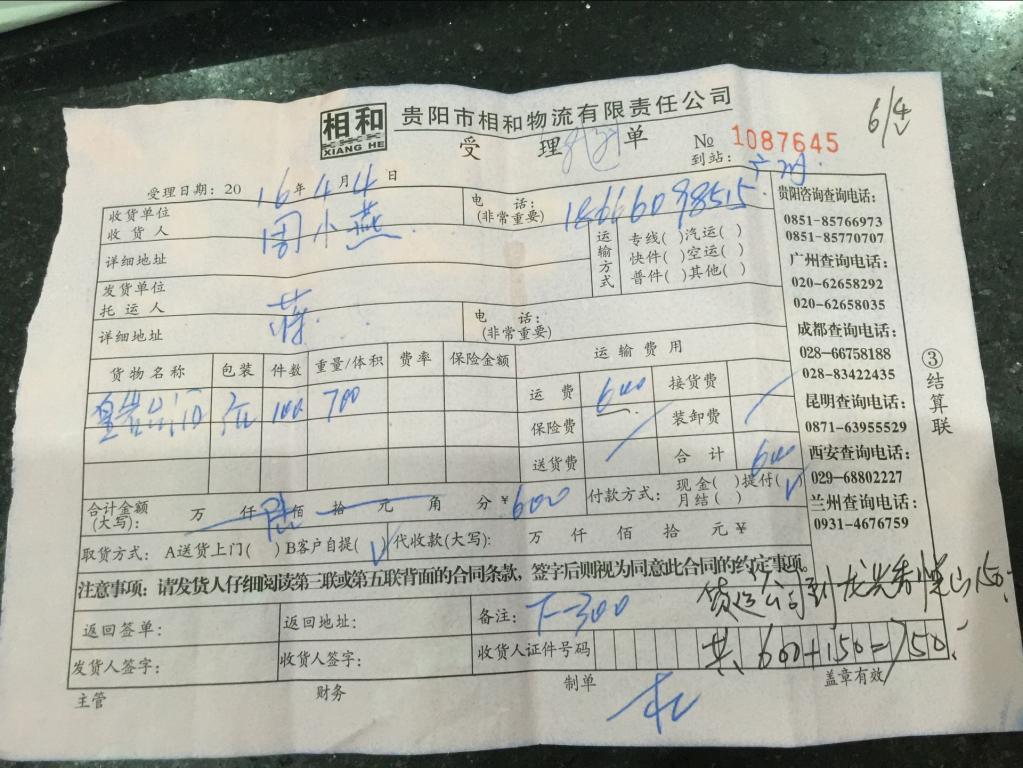 相和 XIANG HE 贵阳市相和物流有限责任公司
6/4
受理单 № 1087645
到站：广州
受理日期：2016年4月4日
收货单位
收货人 周小燕 电话：(非常重要) 18666098515
详细地址
运输方式 专线( )汽运( )
快件( )空运( )
普件( )其他( )
发货单位
托运人 蒋
详细地址 电话：(非常重要)
货物名称 包装 件数 重量/体积 费率 保险金额 运输费用
100 700
运费 600 接货费
保险费 装卸费
送货费 合计 600
合计金额(大写)： 万 仟 陆佰 拾 元 角 分 ¥600
付款方式： 现金( )提付(√)
月结( )
取货方式： A送货上门( ) B客户自提(√) 代收款(大写)： 万 仟 佰 拾 元 ¥
注意事项：请发货人仔细阅读第三联或第五联背面的合同条款，签字后则视为同意此合同的约定事项。
返回签单： 返回地址： 备注：下-300
发货人签字： 收货人签字： 收货人证件号码
货运公司到龙 150
共 600+150=750
主管 财务 制单 盖章有效
贵阳咨询查询电话：
0851-85766973
0851-85770707
广州查询电话：
020-62658292
020-62658035
成都查询电话：
028-66758188
028-83422435
昆明查询电话：
0871-63955529
西安查询电话：
029-68802227
兰州查询电话：
0931-4676759
③结算联